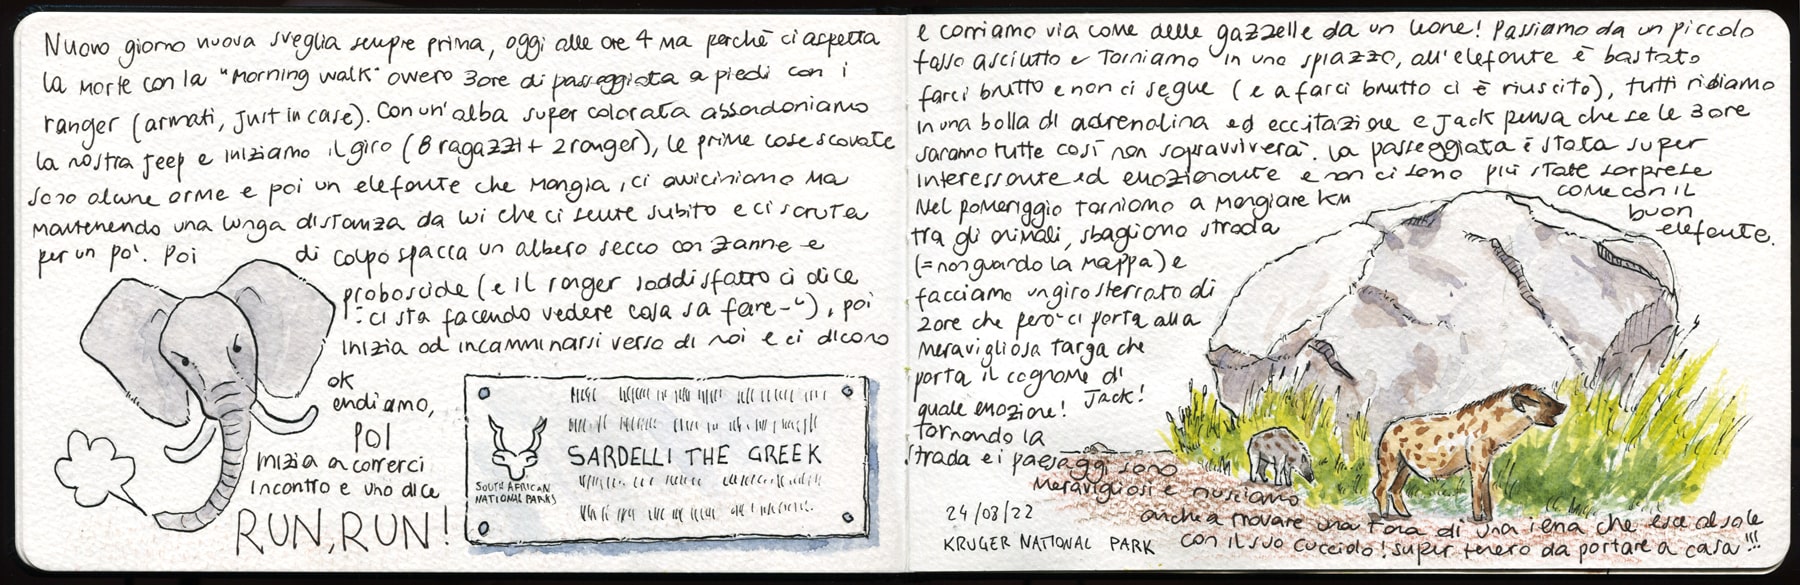 Nuovo giorno nuova sveglia sempre prima, oggi alle ore 4 ma perchè ci aspetta
la morte con la "Morning walk" ovvero 3 ore di passeggiata a piedi con i
ranger (armati, just in case). Con un'alba super colorata abbandoniamo
la nostra jeep e iniziamo il giro (8 ragazzi + 2 ranger), le prime cose scovate
sono alcune orme e poi un elefante che mangia, ci avviciniamo ma
mantenendo una lunga distanza da lui che ci sente subito e ci scruta
per un po'. Poi di colpo spacca un albero secco con zanne e
proboscide (e il ranger soddisfatto ci dice
"ci sta facendo vedere cosa sa fare"), poi
inizia ad incamminarsi verso di noi e ci dicono
ok
andiamo,
poi
inizia a correrci
incontro e uno dice
RUN, RUN!
SOUTH AFRICAN
NATIONAL PARKS
SARDELLI THE GREEK
e corriamo via come delle gazzelle da un leone! Passiamo da un piccolo
fosso asciutto e torniamo in uno spiazzo, all'elefante è bastato
farci brutto e non ci segue (e a farci brutto ci è riuscito), tutti ridiamo
in una bolla di adrenalina ed eccitazione e Jack pensa che se le 3 ore
saranno tutte così non sopravviverà. La passeggiata è stata super
interessante ed emozionante e non ci sono più state sorprese
come con il
buon
elefante.
Nel pomeriggio torniamo a mangiare km
tra gli animali, sbagliamo strada
(= non guardo la mappa) e
facciamo un giro sterrato di
2 ore che però ci porta alla
meravigliosa targa che
porta il cognome di
Jack!
quale emozione!
Tornando la
strada e i paesaggi sono
meravigliosi e riusciamo
anche a trovare una tana di una iena che esce al sole
con il suo cucciolo! Super tenero da portare a casa!!!
24/08/22
KRUGER NATIONAL PARK